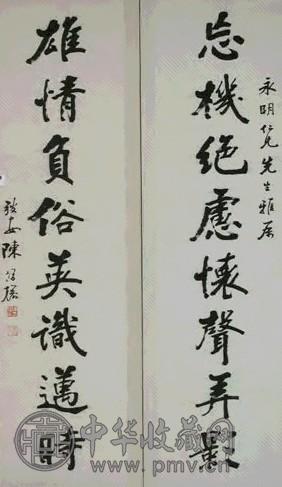 永明仁兄先生雅屬
忘機絕慮懷聲弄影
雄情負俗英識邁時
陳
中华收藏网
www.pmv.cn